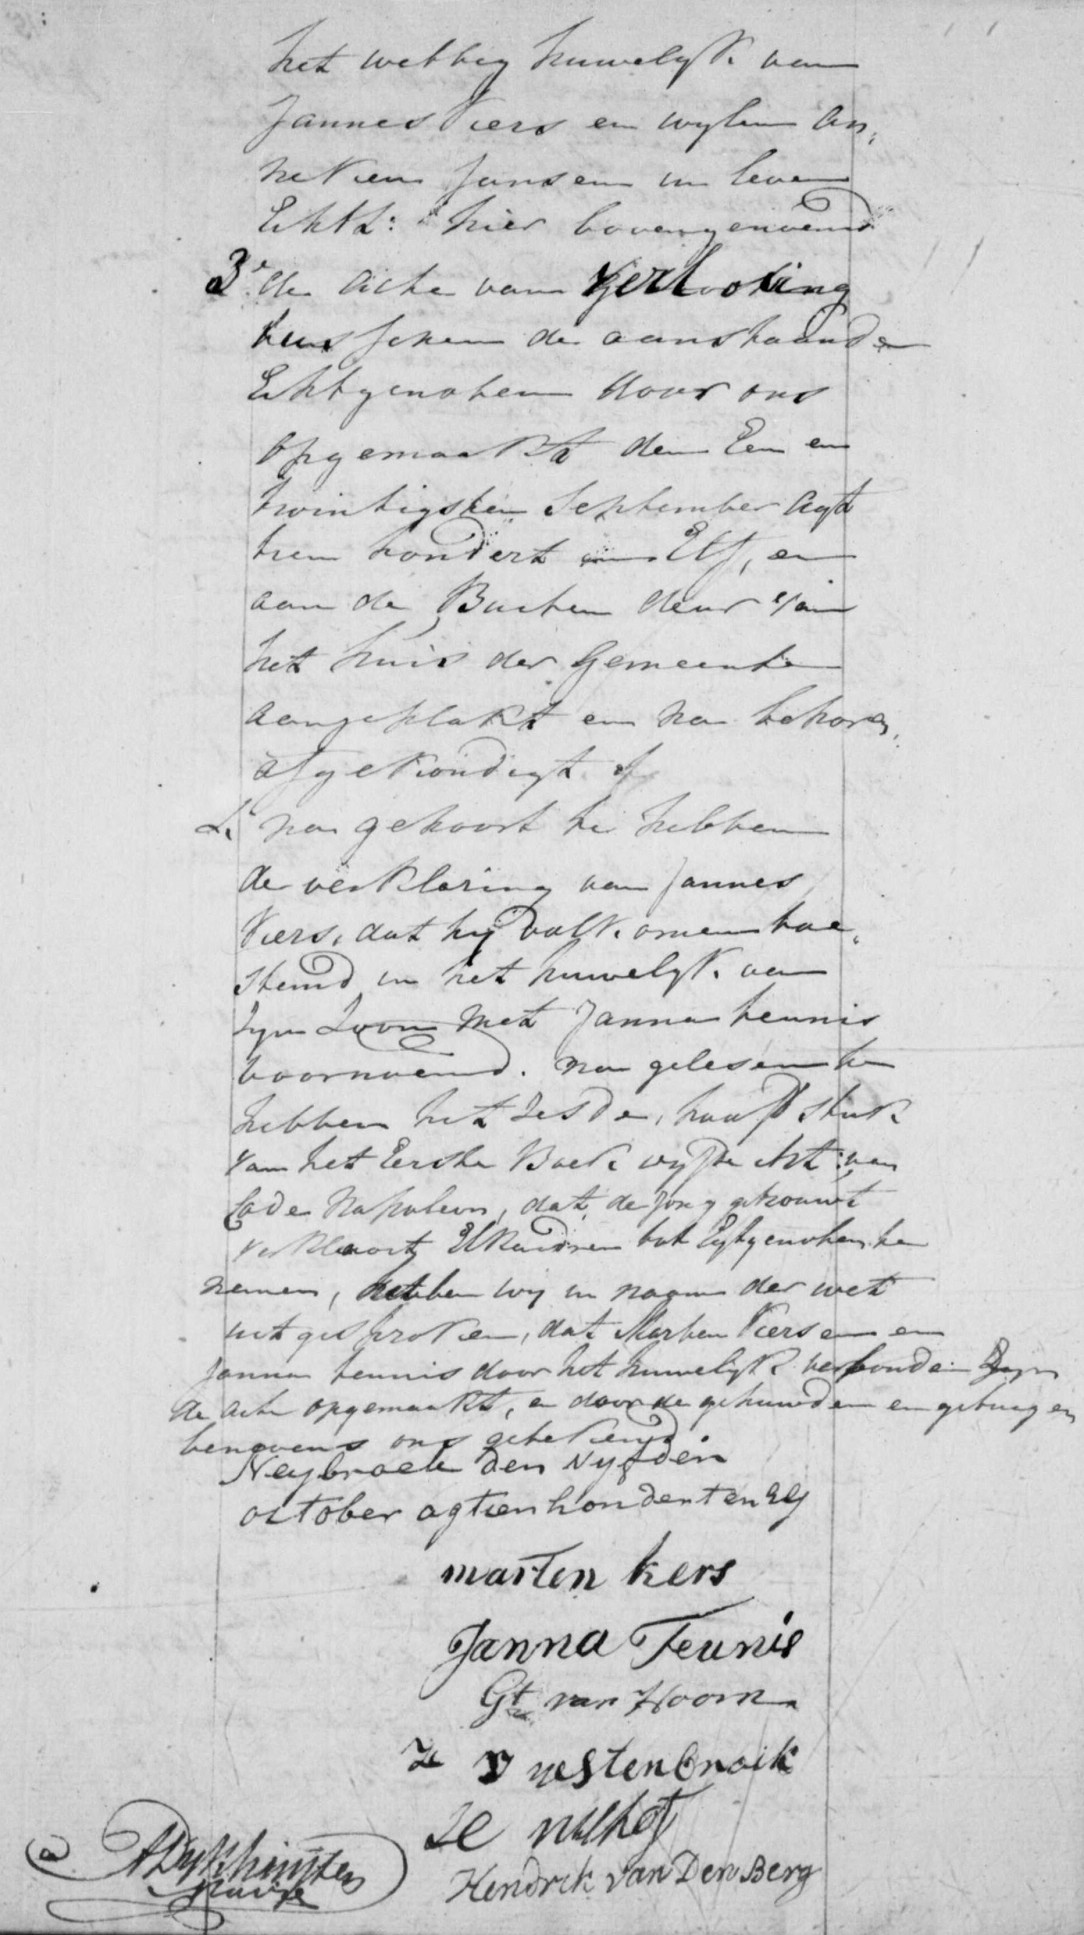 het wettig huwelyk van
Jannes Kiers en wylen An,
nekien Jansen in leven
Echtl: hier bovengenoemd
3e de Acte van Verlooving
tusschen de aanstaande
Echtgenoten door ons
opgemaakt den Een en
twintigsten September Agt
tien hondert en Elf, en
aan de Buiten deur van
het huis der Gemeente
aangeplakt en na behoren,
afgekondigt
4e na gehoort te hebben
de verklaring van Jannes
Kiers, dat hy volkomen toe,
stemd in het huwelyk van
Zyn Zoon met Janna teunis
voornoemd. na gelesen te
hebben het Zesde, hoofdstuk
van het Eerste Boek vyfde Art: van
Code Napoleon, dat de Jong getrouwt
verklaart Elkandren tot Egtgenoten te
nemen, hebben wy in naam der wet
uitgesproken, dat Marten Kiers en
Janna teunis door het huwelyk verbonden Zyn
de Acte opgemaakt, en door de gehuwden en getuigen
benevens ons getekend
Neybroek den vyfden
october agtien hondert en Elf
marten kers
Janna Teunis
Gt van Hoorn
westenbroek
Hendrik van Den Berg
Maire